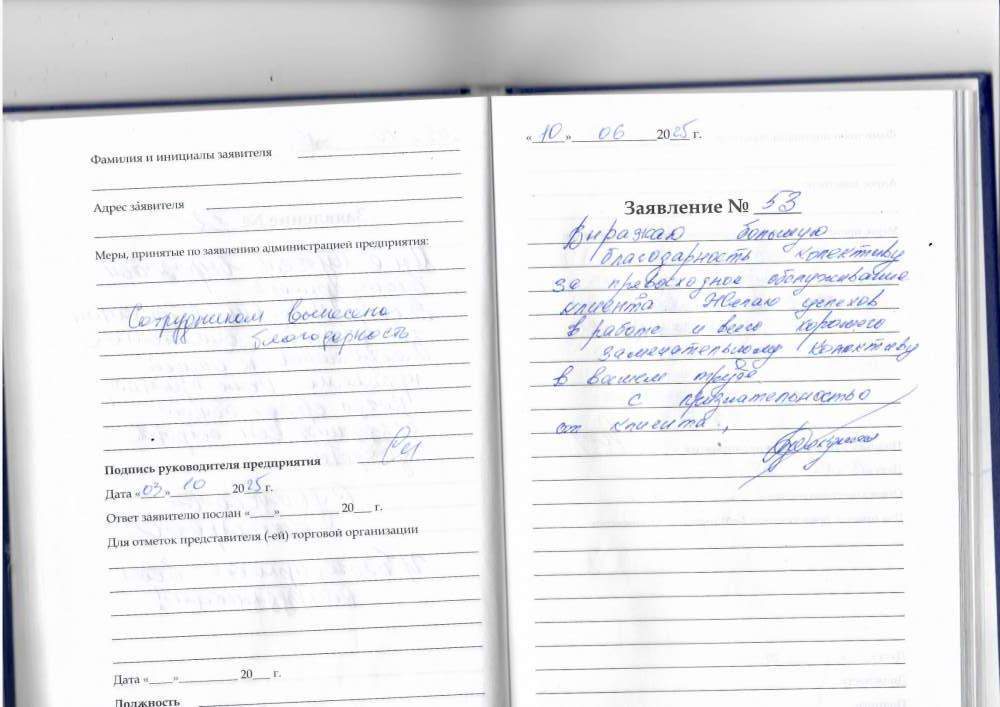 Фамилия и инициалы заявителя
Адрес заявителя
Меры, принятые по заявлению администрацией предприятия:
Сотрудником вынесена
благодарность
Подпись руководителя предприятия
Дата «03» 10 2025 г.
Ответ заявителю послан «____»__________ 20___ г.
Для отметок представителя (-ей) торговой организации
Дата «____»__________ 20___ г.
Должность
«10» 06 2025 г.
Заявление № 53
Выражаю большую
благодарность колективу
за превосходное обслуживание
клиента Желаю успехов
в работе и всего хорошего
замечательному колективу
в вашем труде
с признательностью
от клиента